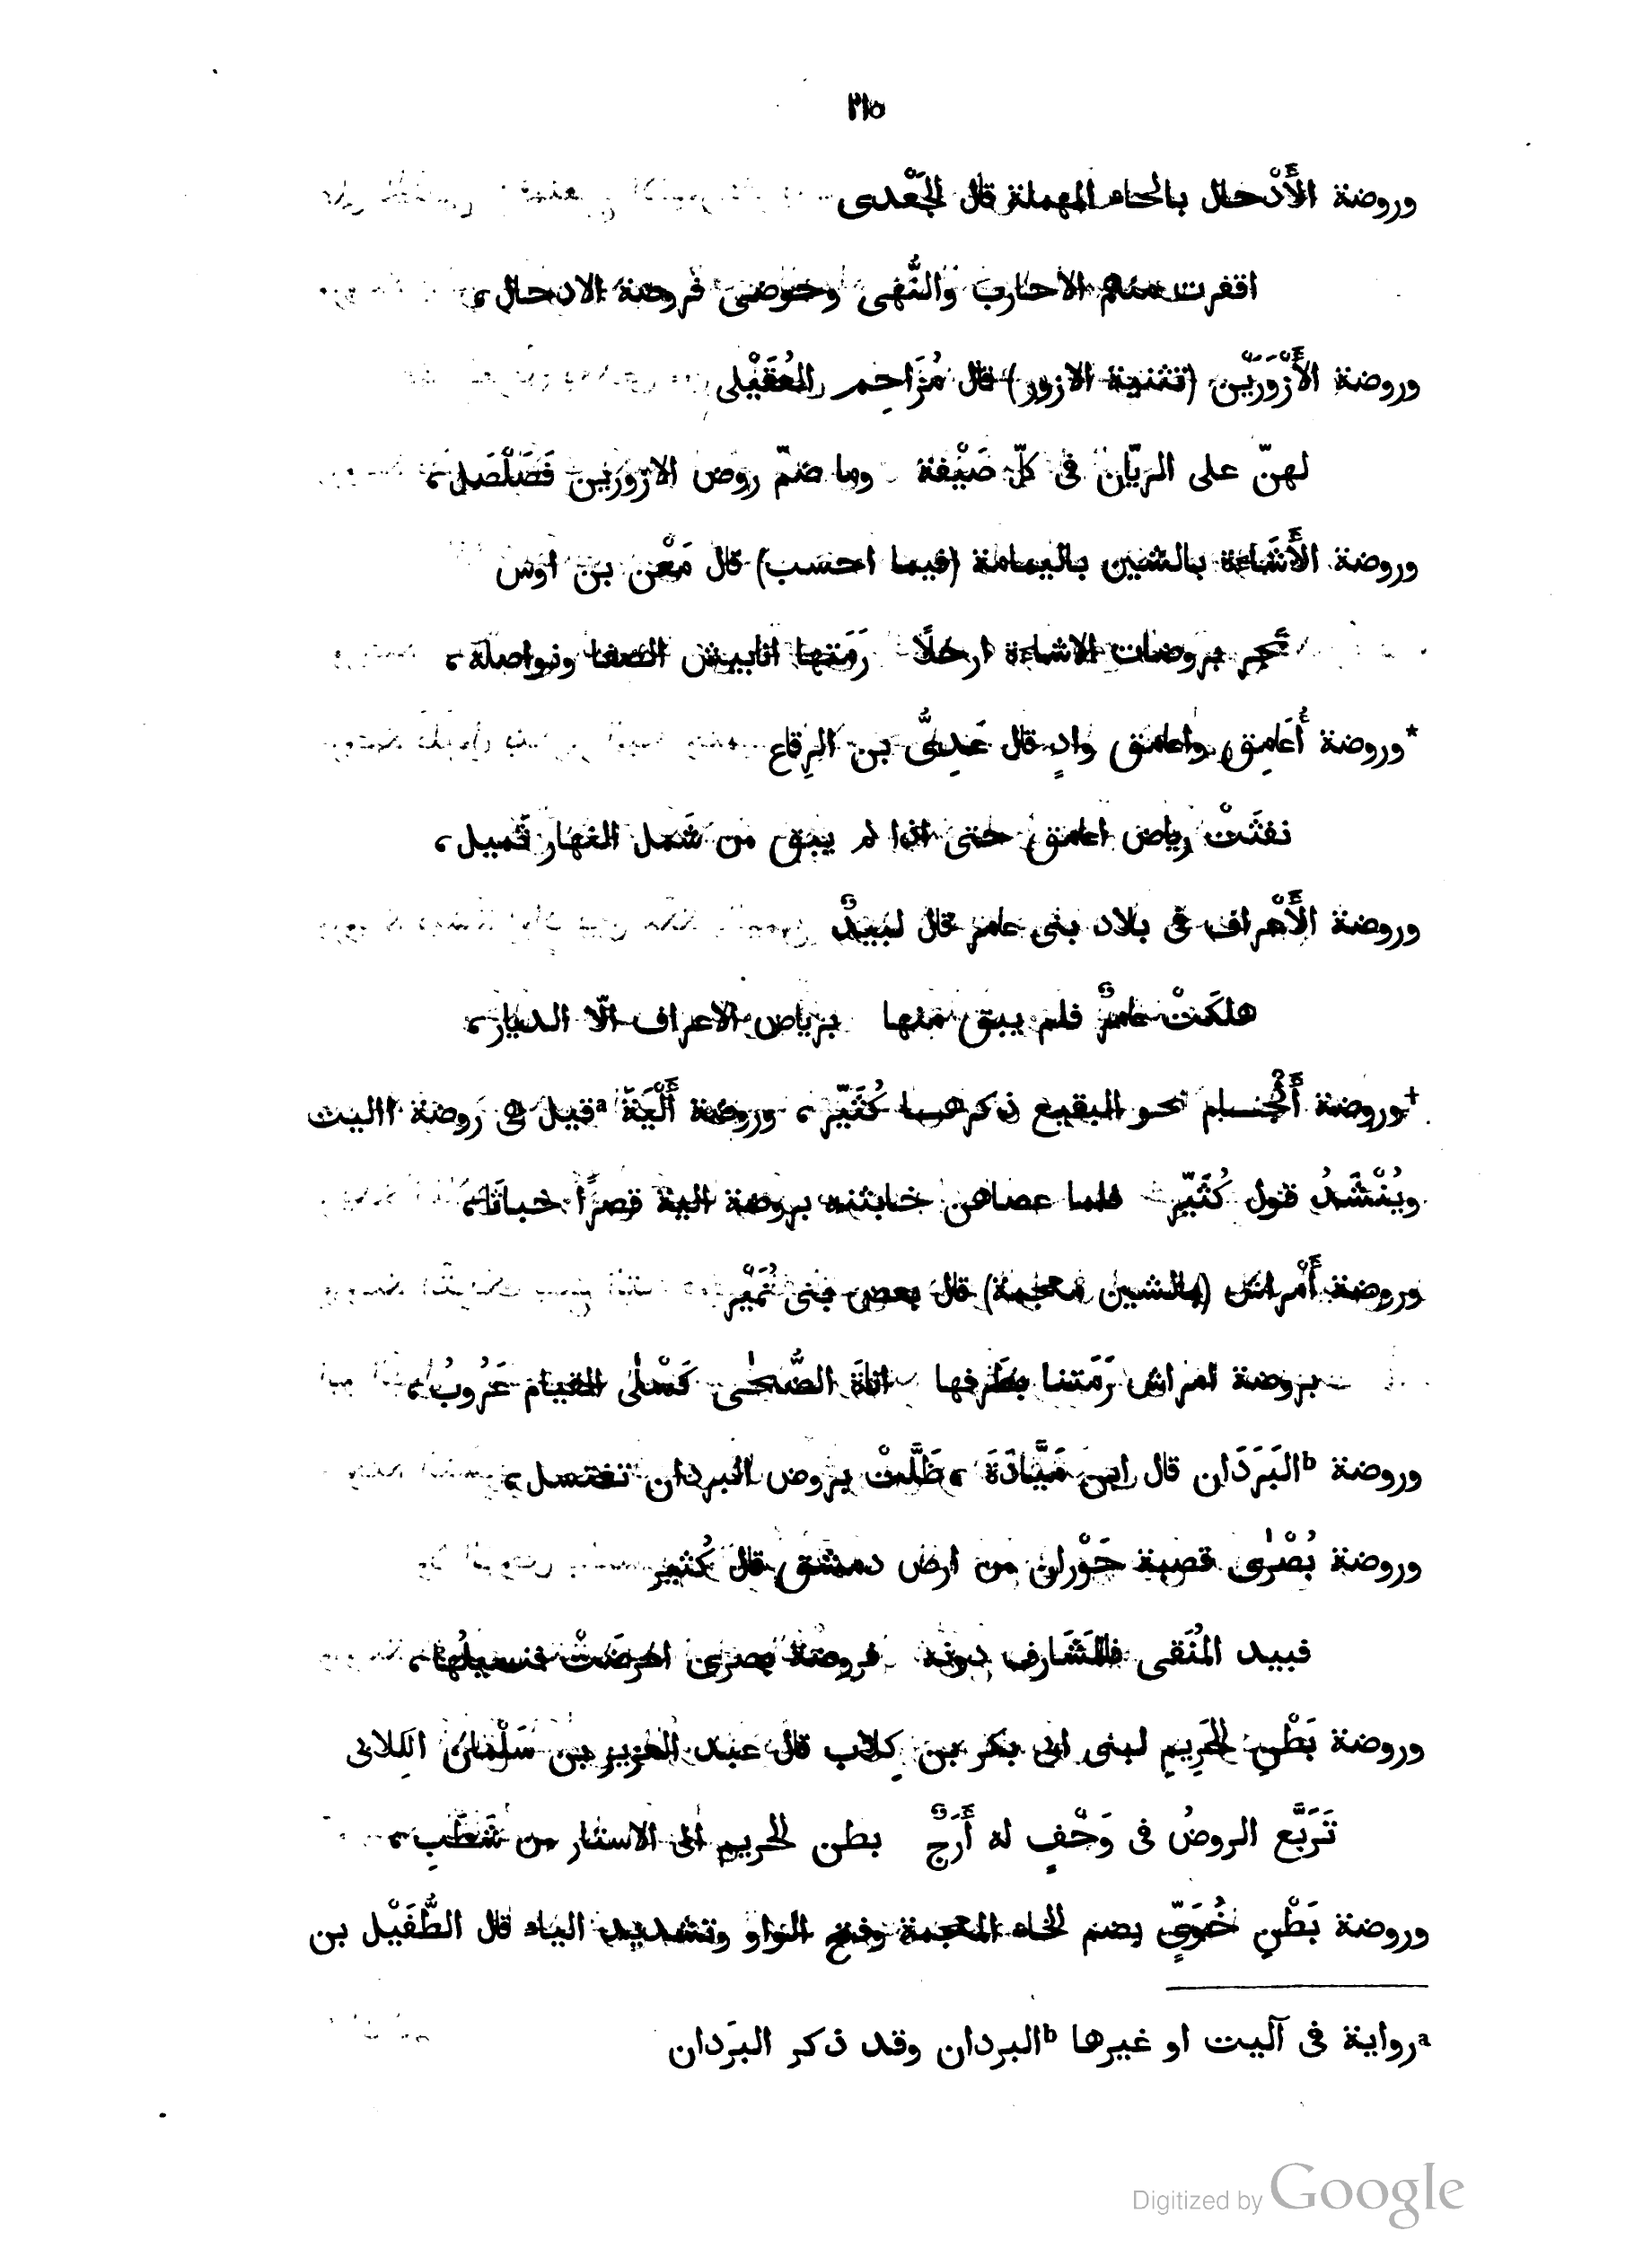 ٢١٥
وروضة الأَدْحال بالحاء المهملة قال الجَعْدى
اقفرت منهم الاحارب والنُّهى وحوضى فروضة الادحال،
وروضة الأَزْوَرَيْن (تثنية الازور) قال مُزَاحِم العُقَيْلى
لهنّ على الريّان فى كلّ صَيْفة وما ضمّ روض الازورين فَصَلْصَل،
وروضة الأَشَاءة بالشين باليمامة (فيما احسب) قال مَعْن بن اوس
تَجر بروضات الاشاءة ارحلًا رَمَتها انابيش السفا ونواصله،
*وروضة أُعَامِق واعامق وادٍ قال عَدِىُّ بن الرِقاع
نفشَتْ رياض اعامق حتى اذا لم يبق من شَمل النهار ثَميل،
وروضة الأَعْراف فى بلاد بنى عامر قال لبيدٌ
هلكَتْ عامرٌ فلم يبق منها برياض الاعراف الّا الديار،
+وروضة أَلْجام نحو البقيع ذكرها كُثَيّر، وروضة أَلْيَةَ aقيل هى روضة االيت
ويُنْشَدُ قول كُثَيّر فلما عصاهن خابثنه بروضة الية قصرًا خباثَا،
وروضة أَمْراش (بالشين معجمة) قال بعض بنى نُمَيْر
بروضة امراش رَمَتنا بطَرفها اناة الضُّحٰى كَسْلٰى القيام عَرُوبُ،
وروضة bالبَرَدَان قال ابن مَيَّادَةَ، ظَلَّتْ بروض البردان تغتسل،
وروضة بُصْرٰى قصبة حَوْران من ارض دمشق قال كُثير
فبيد المُنَقى فالمَشَارف دونه فروضة بصرى اعرضَتْ فنسيلُها،
وروضة بَطْنِ الحَرِيمِ لبنى ابى بكر بن كِلاب قال عبد العزيز بن سَلْمان الكِلابى
تَرَبَّع الروضُ فى وَحْفٍ له أَرَجٌ بطن الحريم الى الاستار من شَطَبِ،
وروضة بَطْنِ خُوَىٍّ بضم الخاء المعجمة وفتح الواو وتشديد الياء قال الطُّفَيْل بن
aرواية فى آليت او غيرها bالبردان وقد ذكر البرَدان
Digitized by Google